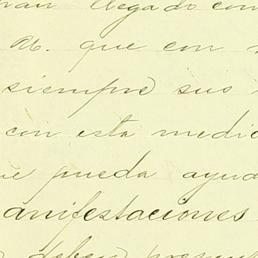 ran llegado con
M. que con
siempre sus
con esta medic
ue pueda ayud
anifestaciones
deben